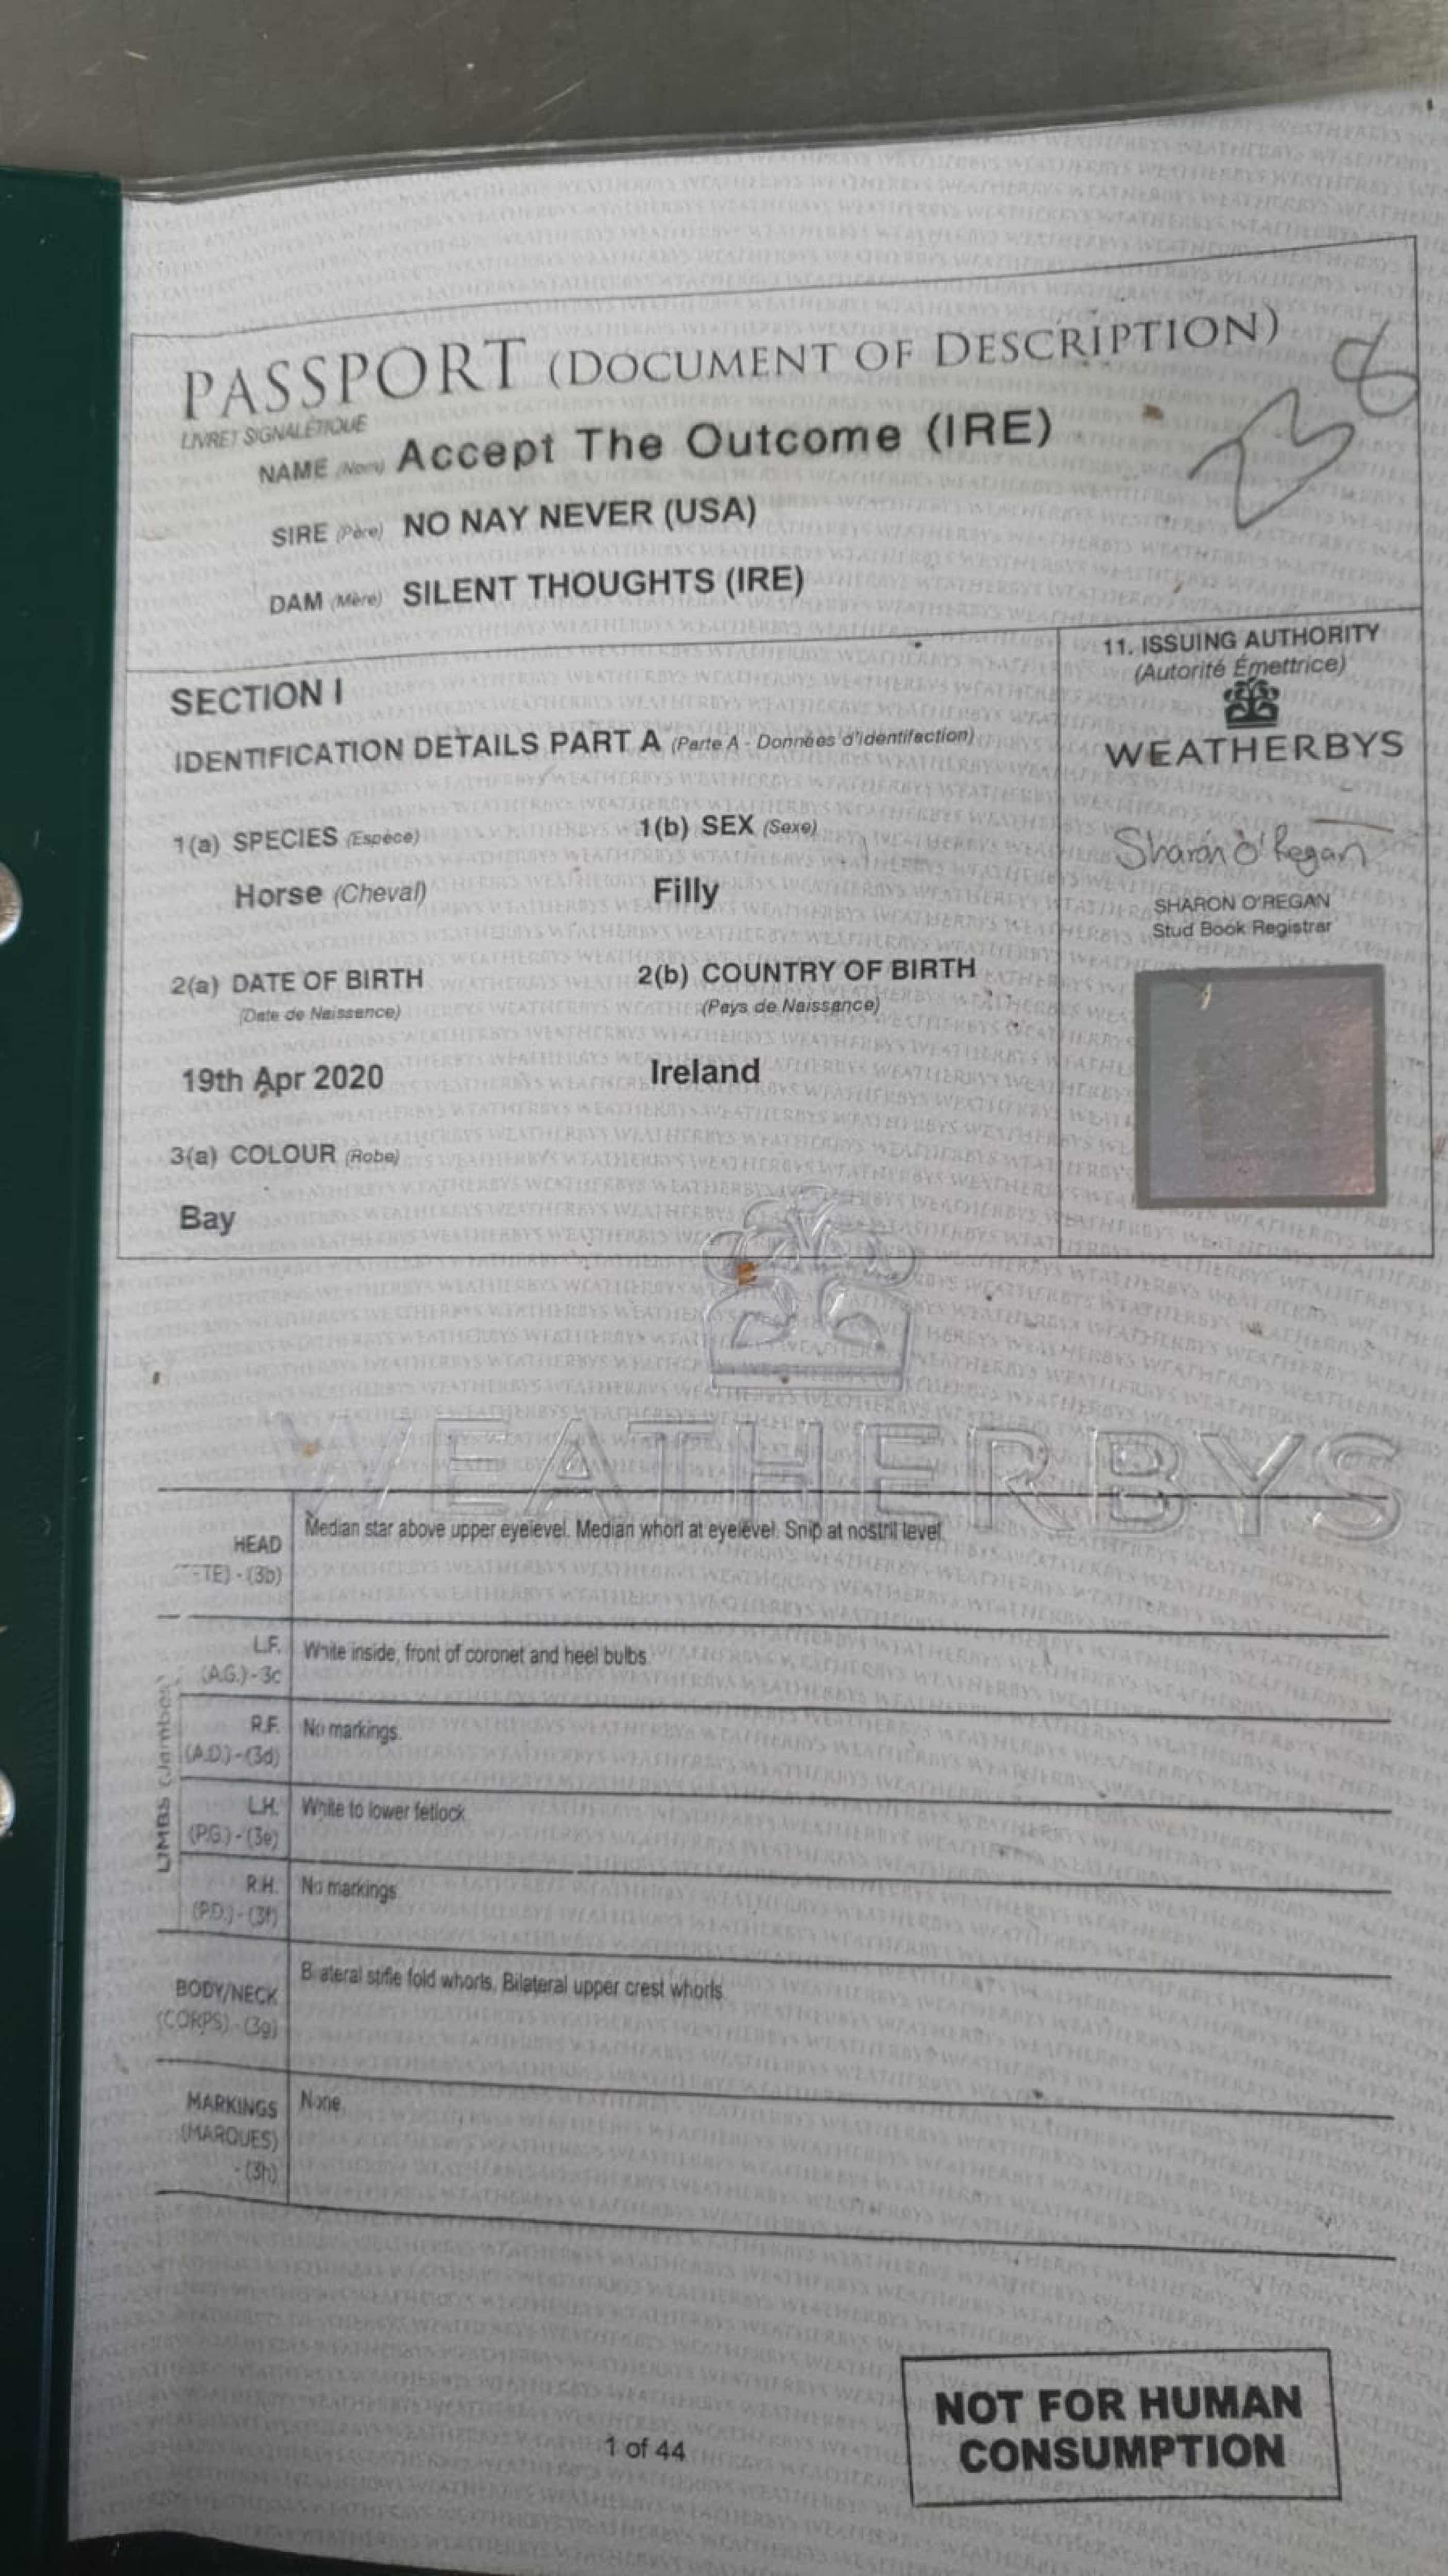 PASSPORT (DOCUMENT OF DESCRIPTION)
LIVRET SIGNALÉTIQUE
NAME (Nom) Accept The Outcome (IRE)
SIRE (Père) NO NAY NEVER (USA)
DAM (Mère) SILENT THOUGHTS (IRE)
SECTION I
IDENTIFICATION DETAILS PART A (Parte A - Données d'identifection)
1(a) SPECIES (Espèce)
1(b) SEX (Sexe)
Horse (Cheval)
Filly
2(a) DATE OF BIRTH
(Date de Naissence)
2(b) COUNTRY OF BIRTH
(Pays de Naissance)
19th Apr 2020
Ireland
3(a) COLOUR (Robe)
Bay
11. ISSUING AUTHORITY
(Autorité Émettrice)
WEATHERBYS
Sharon O'Regan
SHARON O'REGAN
Stud Book Registrar
WEATHERBYS
HEAD
TE) - (3b)
Median star above upper eyelevel. Median whorl at eyelevel. Snip at nostril level.
LIMBS
L.F.
(A.G.) - 3c
White inside, front of coronet and heel bulbs.
R.F.
(A.D.) - (3d)
No markings.
L.H.
(P.G.) - (3e)
White to lower fetlock.
R.H.
(P.D.) - (3f)
No markings.
BODY/NECK
(CORPS) - (3g)
Bilateral stifle fold whorls, Bilateral upper crest whorls.
MARKINGS
(MARQUES)
- (3h)
None.
1 of 44
NOT FOR HUMAN
CONSUMPTION